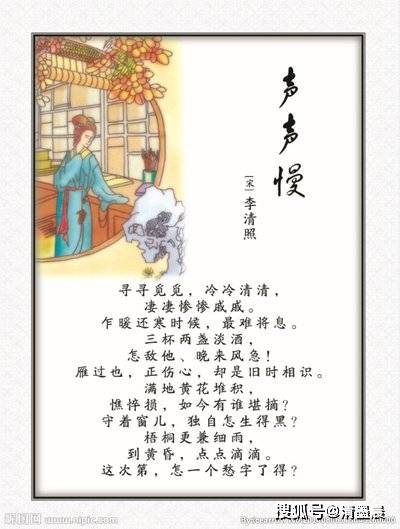 声声慢
[宋]李清照
寻寻觅觅，冷冷清清，
凄凄惨惨戚戚。
乍暖还寒时候，最难将息。
三杯两盏淡酒，
怎敌他、晚来风急！
雁过也，正伤心，却是旧时相识。
满地黄花堆积，
憔悴损，如今有谁堪摘？
守着窗儿，独自怎生得黑？
梧桐更兼细雨，
到黄昏，点点滴滴。
这次第，怎一个愁字了得？
昵图网 www.nipic.com
搜狐号@清墨晨